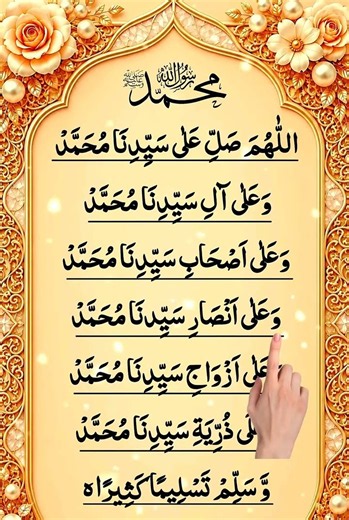 محمد رسول الله ﷺ
اللّٰهُمَّ صَلِّ عَلٰی سَيِّدِنَا مُحَمَّدْ
وَعَلٰی آلِ سَيِّدِنَا مُحَمَّدْ
وَعَلٰی اَصْحَابِ سَيِّدِنَا مُحَمَّدْ
وَعَلٰی اَنْصَارِ سَيِّدِنَا مُحَمَّدْ
وَعَلٰی اَزْوَاجِ سَيِّدِنَا مُحَمَّدْ
عَلٰی ذُرِّيَةِ سَيِّدِنَا مُحَمَّدْ
وَسَلِّمْ تَسْلِيمًا كَثِيرًا ه